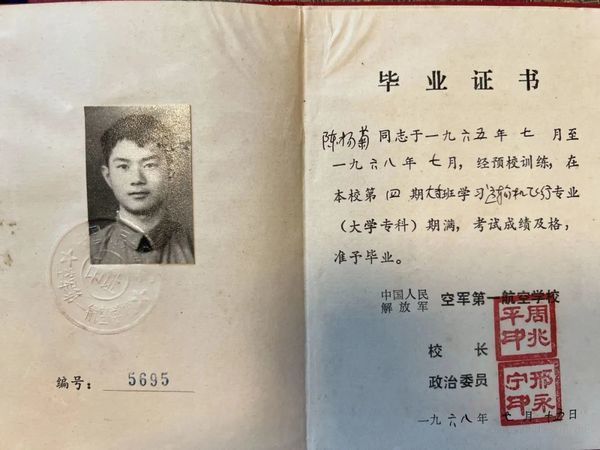 编号：5695
毕业证书
陈杨菊同志于一九六五年七月至
一九六八年七月，经预校训练，在
本校第四期 班学习运输机飞行专业
（大学专科）期满，考试成绩及格，
准予毕业。
中国人民
解放军
空军第一航空学校
校长
周兆
平印
政治委员
邢永
宁印
一九六八年七月十五日